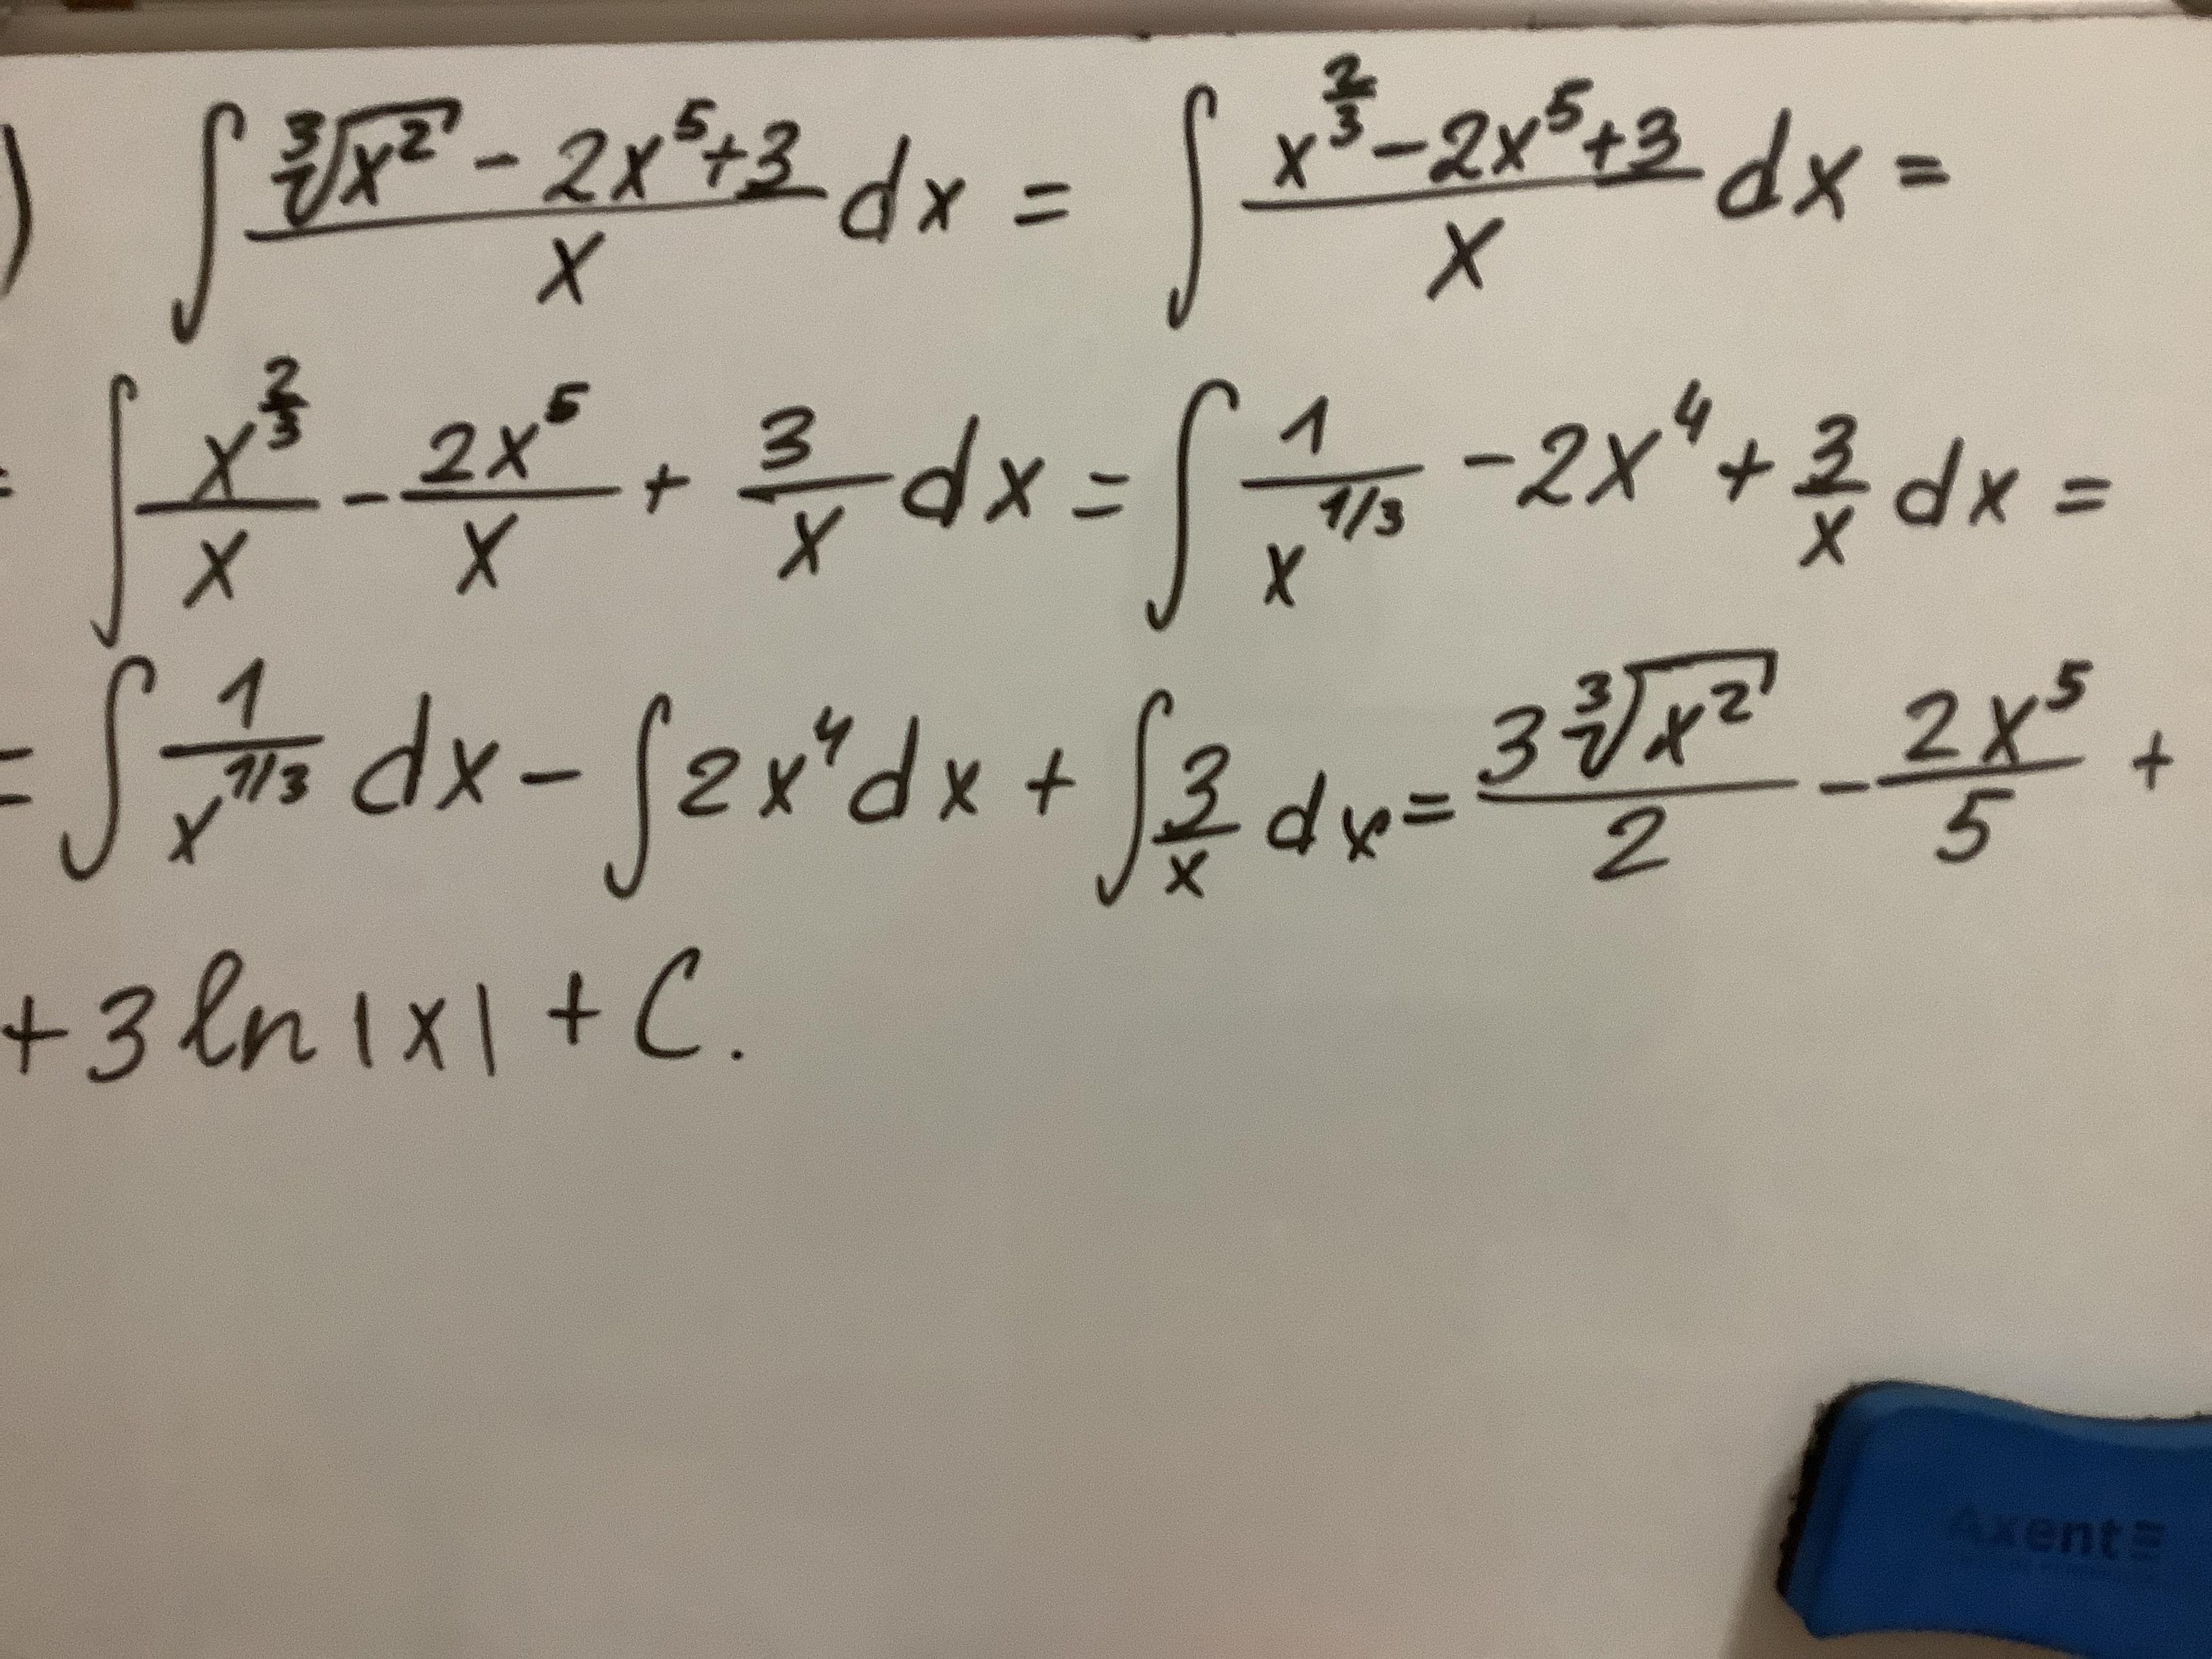 ) ∫ (∛(x²) - 2x⁵ + 3)/x dx = ∫ (x^(2/3) - 2x⁵ + 3)/x dx =
= ∫ x^(2/3)/x - 2x⁵/x + 3/x dx = ∫ 1/x^(1/3) - 2x⁴ + 3/x dx =
= ∫ 1/x^(1/3) dx - ∫ 2x⁴ dx + ∫ 3/x dx = 3∛(x²)/2 - 2x⁵/5 +
+ 3 ln |x| + C.
Axent